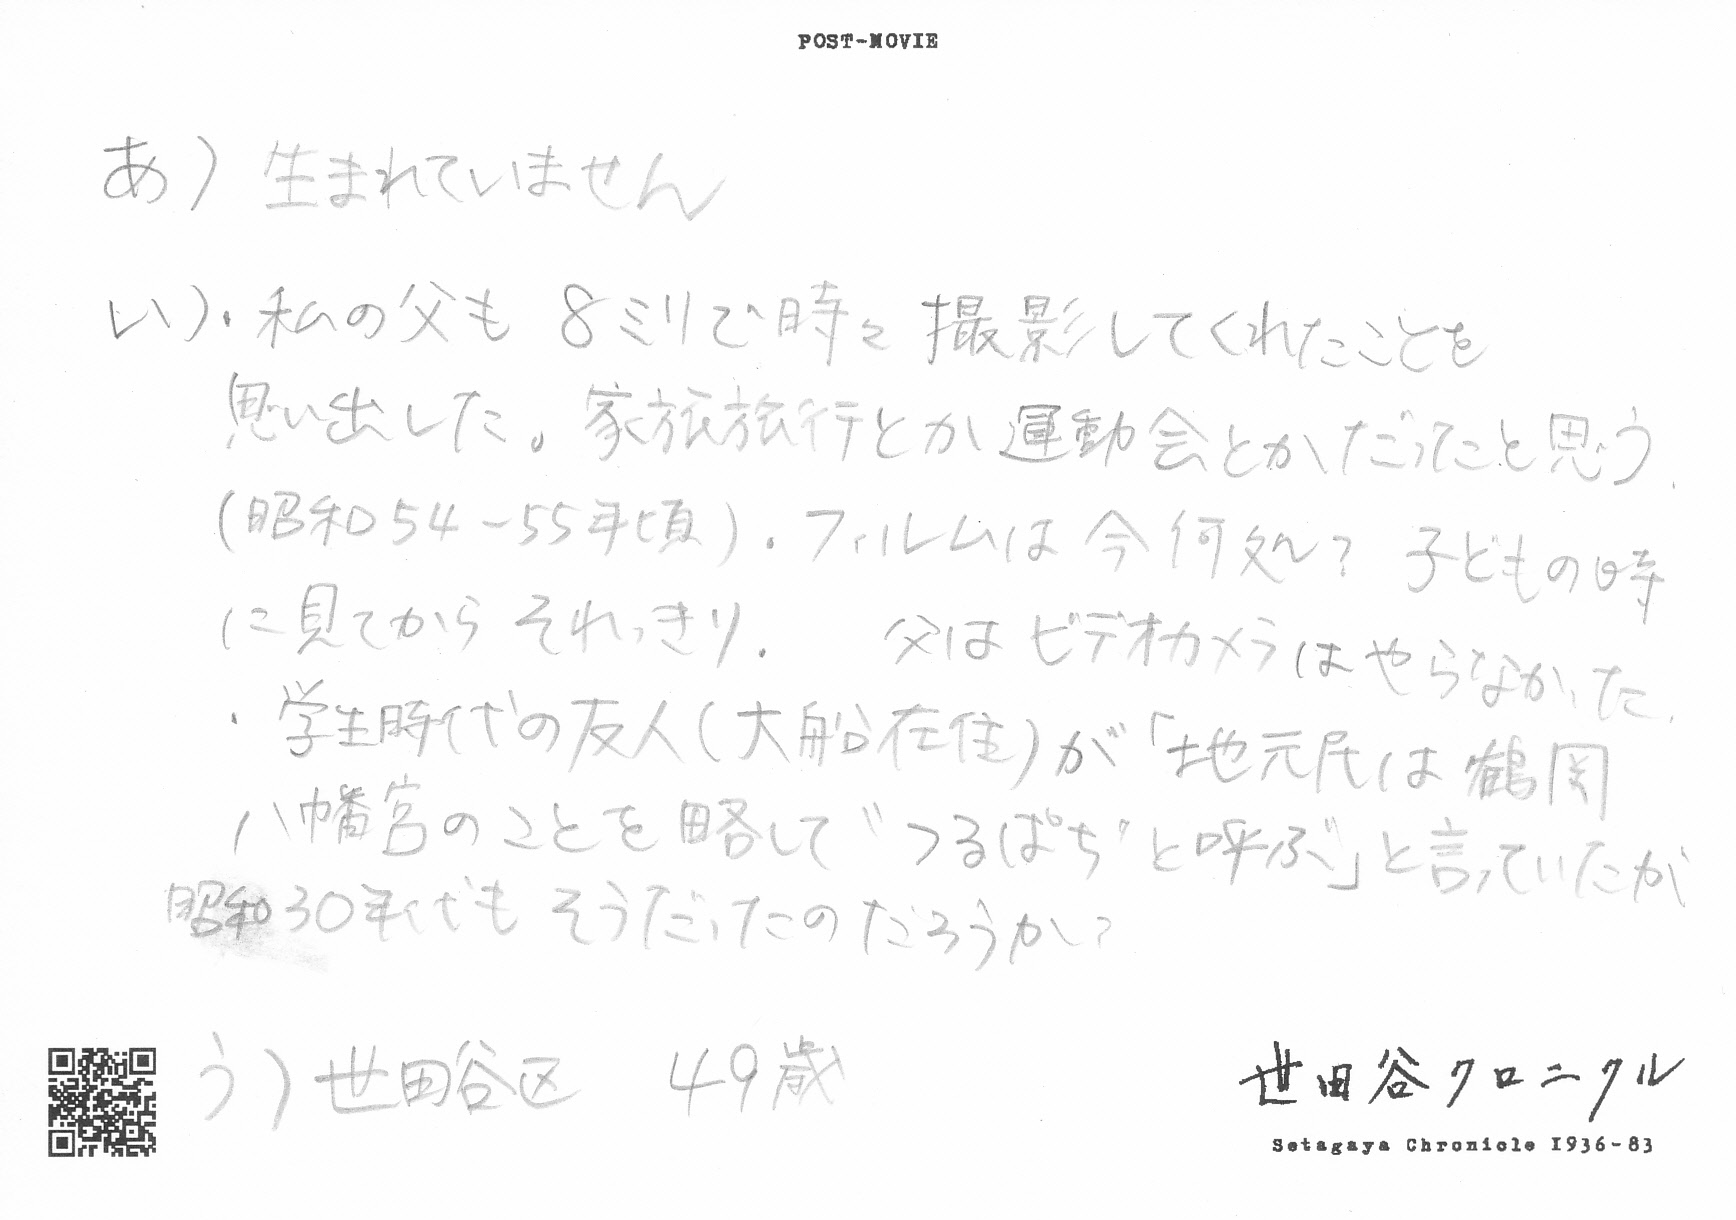 POST-MOVIE
あ) 生まれていません
い)・私の父も 8ミリで時々 撮影してくれたことを
思い出した。家族旅行とか運動会とかだったと思う.
(昭和54-55年頃). フィルムは今何処へ? 子どもの時
に見てから それっきり. 父は ビデオカメラはやらなかった.
・学生時代の友人(大船在住)が「地元民は 鶴岡
八幡宮のことを略して“つるぱち”と呼ぶ」と言っていたが
昭和30年代も そうだったのだろうか?
う) 世田谷区 49歳
世田谷クロニクル
Setagaya Chronicle 1936-83